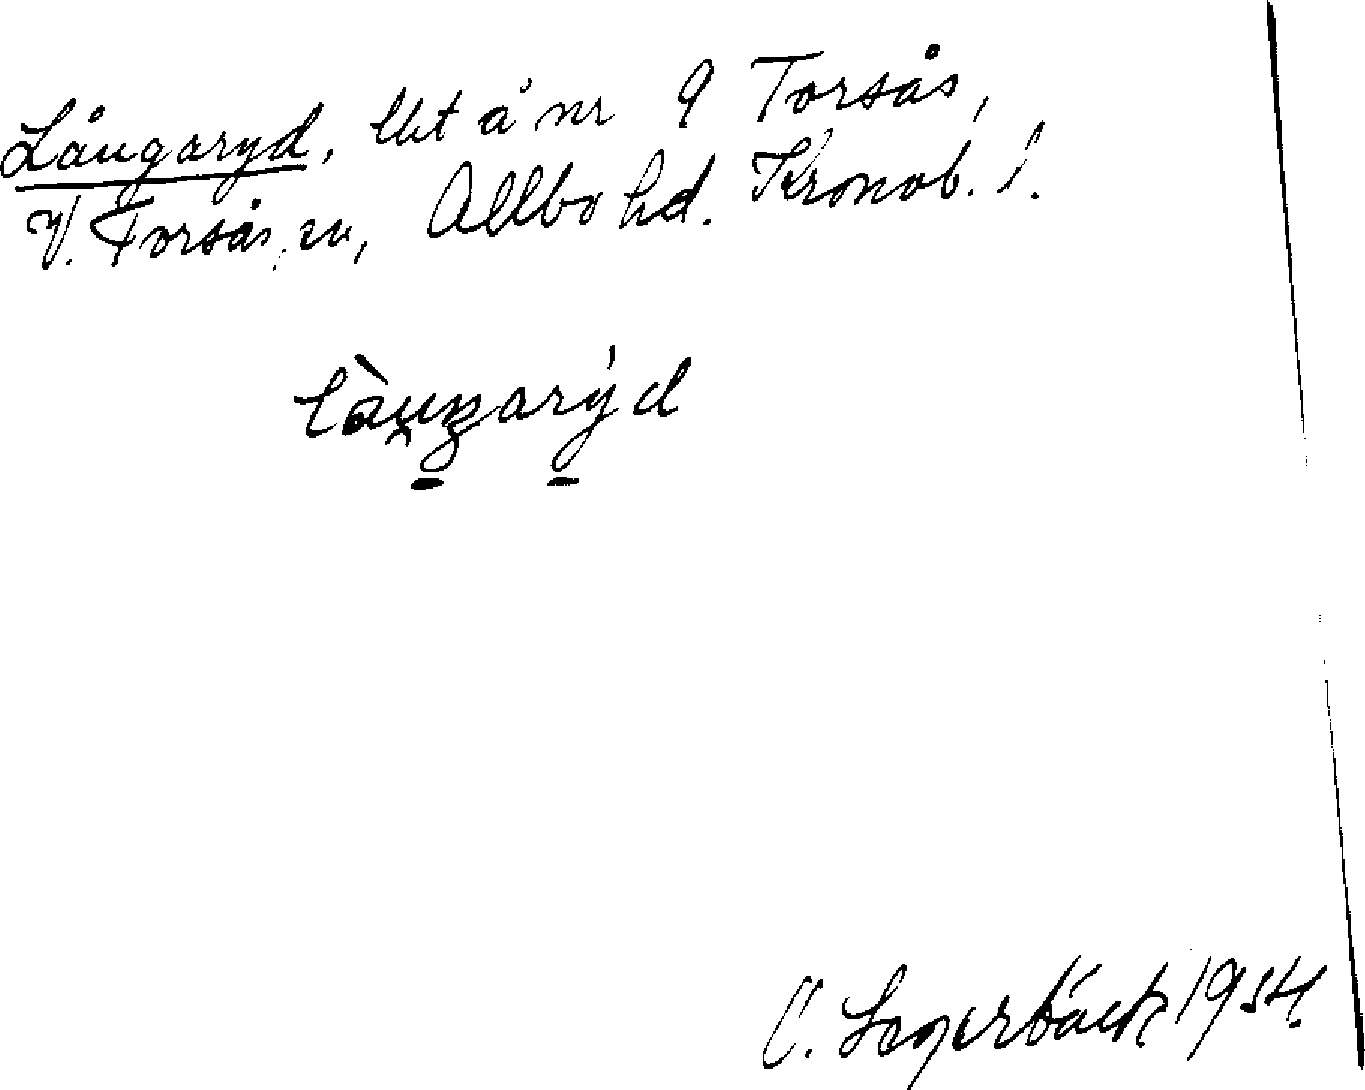 Långaryd, lht å nr 9 Torsås,
V. Torsås sn, Allbo hd. Kronob. l.
làu̯ŋarýd
1954.